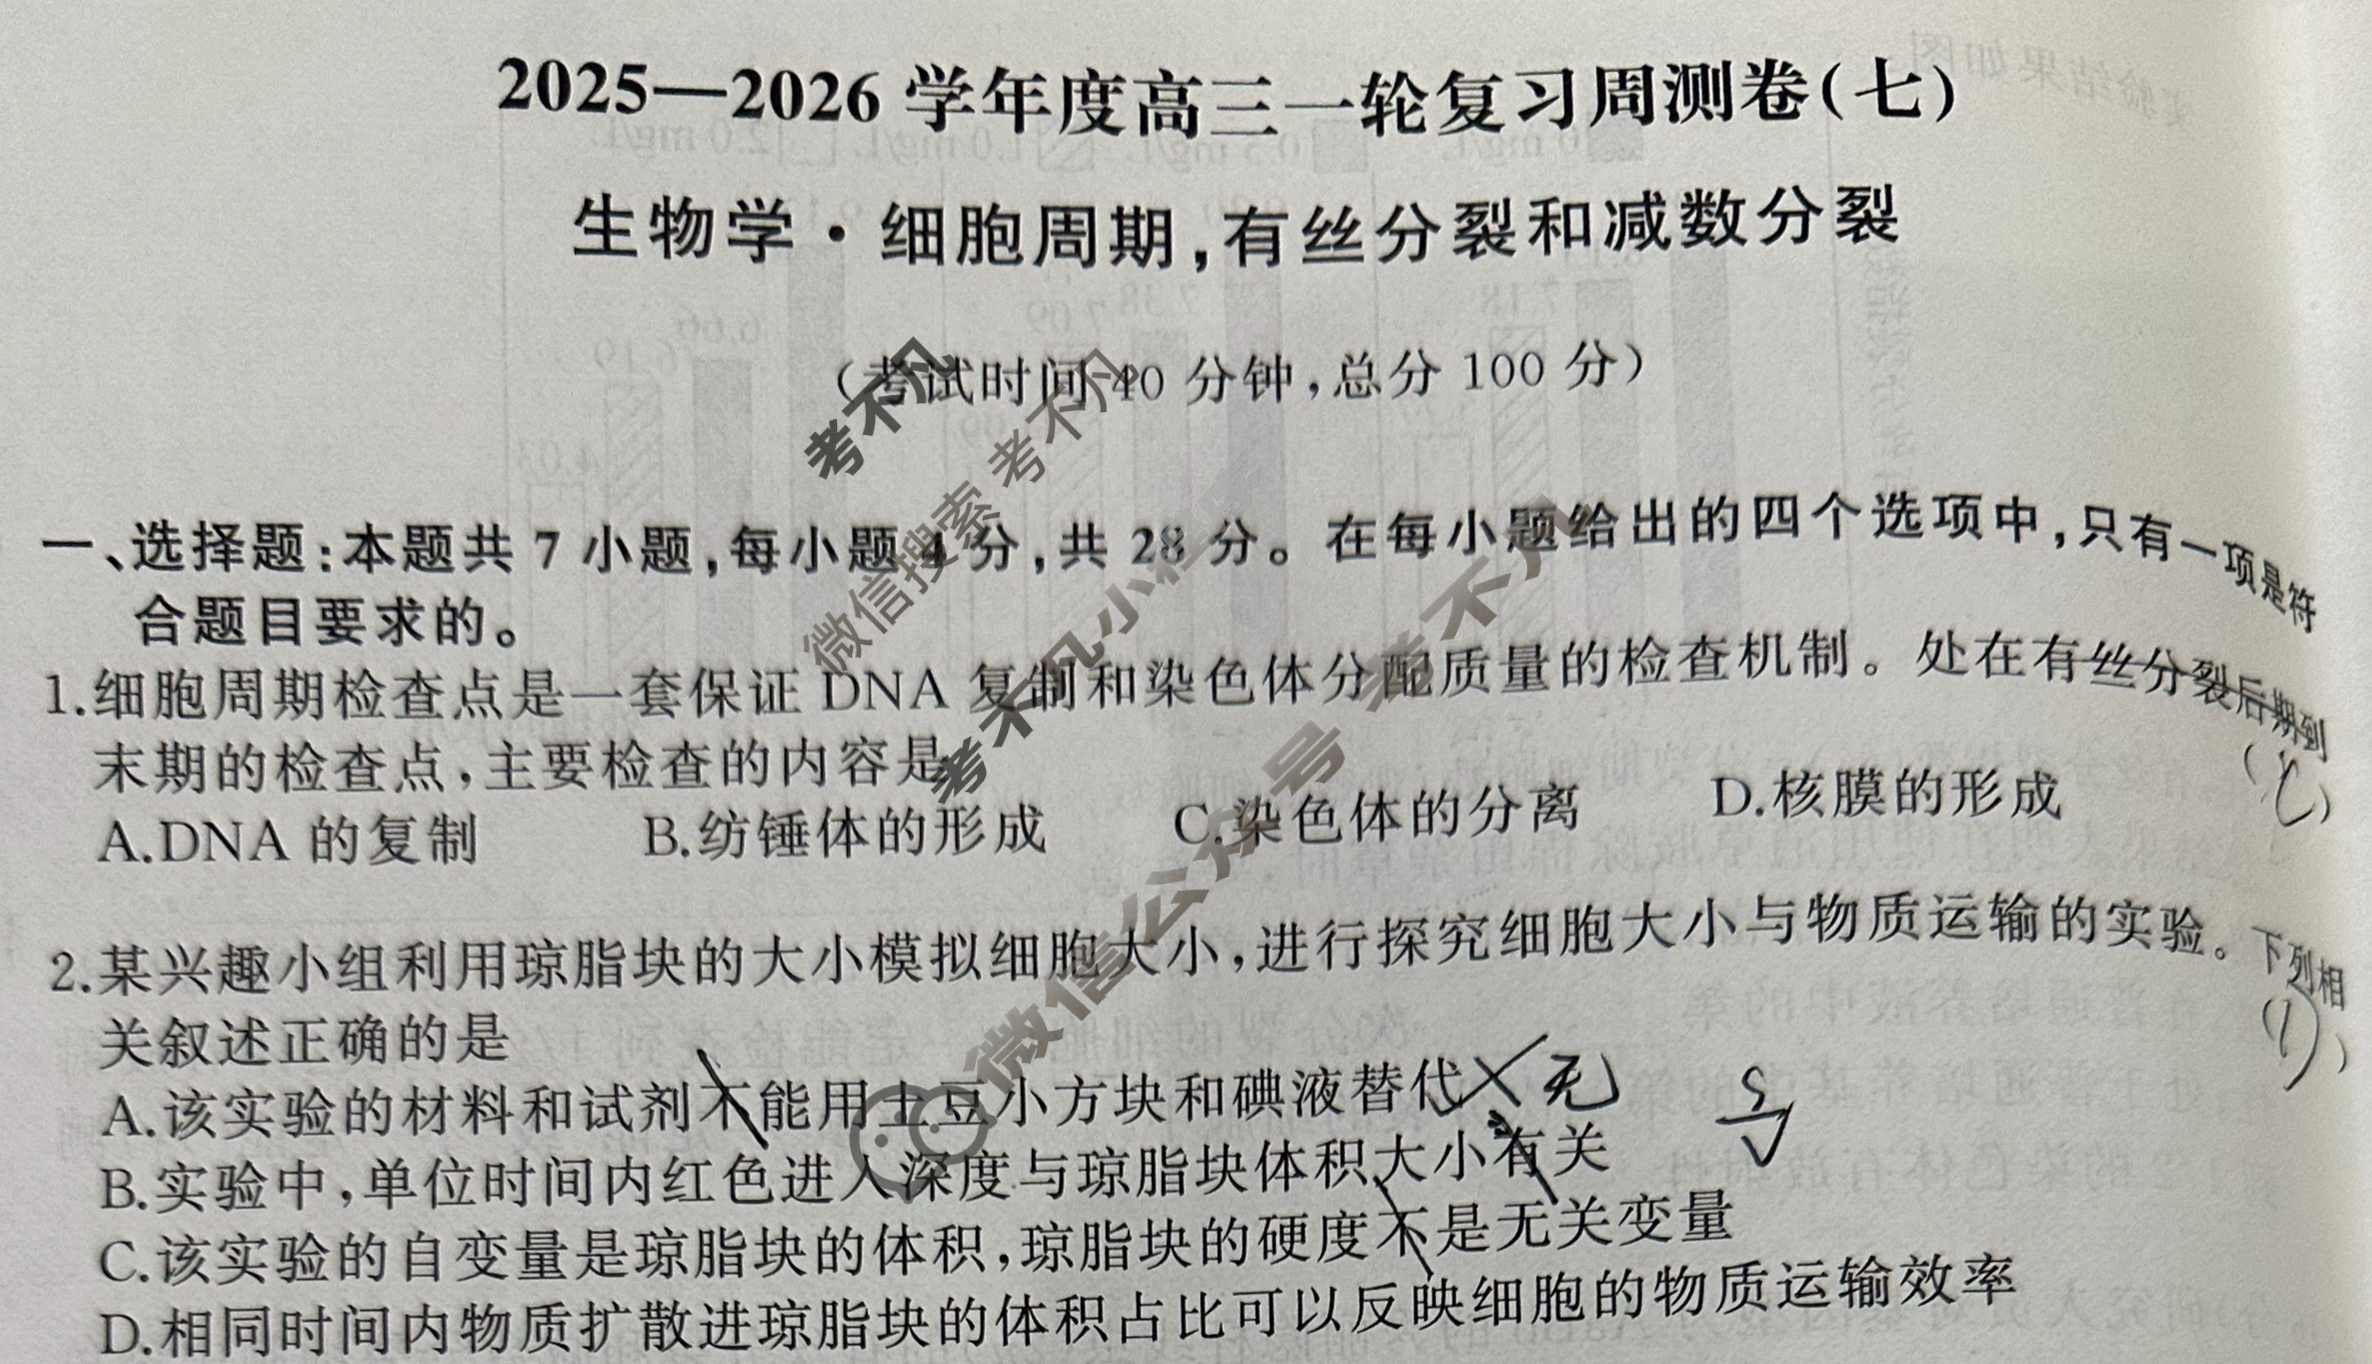 2025—2026 学年度高三一轮复习周测卷(七)
生物学·细胞周期,有丝分裂和减数分裂
(考试时间 40 分钟,总分 100 分)
一、选择题:本题共 7 小题,每小题 4 分,共 28 分。在每小题给出的四个选项中,只有一项是符
合题目要求的。
1.细胞周期检查点是一套保证 DNA 复制和染色体分配质量的检查机制。处在有丝分裂后期到
末期的检查点,主要检查的内容是 ( C )
A.DNA 的复制 B.纺锤体的形成 C.染色体的分离 D.核膜的形成
2.某兴趣小组利用琼脂块的大小模拟细胞大小,进行探究细胞大小与物质运输的实验。下列相
关叙述正确的是 ( )
A.该实验的材料和试剂不能用土豆小方块和碘液替代 无
B.实验中,单位时间内红色进入深度与琼脂块体积大小有关
C.该实验的自变量是琼脂块的体积,琼脂块的硬度不是无关变量
D.相同时间内物质扩散进琼脂块的体积占比可以反映细胞的物质运输效率
考不凡
微信搜索 考不凡
考不凡小程序
微信公众号 考不凡